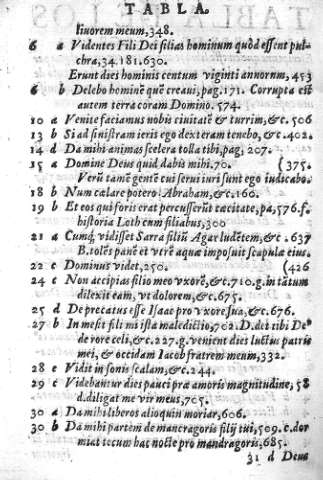 TABLA.
liuorem meum, 348.
6 a Videntes Fili Dei filias hominum quòd essent pulchra, 34.181.630.
Erunt dies hominis centum viginti annorum, 453
6 b Delebo hominē quē creaui, pag. 171. Corrupta est
autem terra coram Domino. 574.
10 a Venite faciamus nobis ciuitatē & turrim, &c. 506
13 b Si ad sinistram ieris ego dexteram tenebo, &c. 402.
14 d Da mihi animas cetera tolle tibi, pag, 207.
15 a Domine Deus quid dabis mihi. 70. (375.
Verū tamē gentē cui serui iuri sunt ego iudicabo.
18 b Num cælare potero Abraham, &c. 160.
19 b Et eos qui foris erat percusserūt cæcitate, pa, 576. f.
historia Loth cum filiabus, 300
21 a Cumq́, vidisset Sarra filiū Agar ludētem, &c. 637
B. tolēs panē et vtrē aquæ imposuit scapulæ eius.
22 c Dominus videt, 250. (426
24 c Non accipias filio meo vxorē, &c, 710. g. in tātum
dilexit eam, vt dolorem, &c. 675.
25 d Deprecatus esse Isaac pro vxore sua, &c, 676.
27 b In me sit fili mi ista maledictio, 702. D. det tibi De'
de rore celi, &c. 227. g. venient dies luctus patris
mei, & occidam Iacob fratrem meum, 332.
28 c Vidit in sonis scalam, &c. 244.
29 c Videbantur dies pauci præ amoris magnitudine, 58
d. diliget me vir meus, 705.
30 a Da mihi liberos alioquin moriar, 606.
30 b Da mihi partem de mandragoris filij tui, 509. c. dor
miat tecum hac nocte pro mandragoris, 685.
31 d Deus